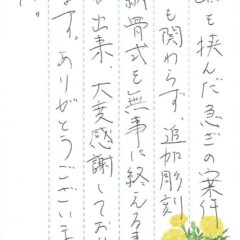 を挟んだ急ぎの案件
も関わらず、追加彫刻
納骨式を無事に終える事
出来、大変感謝してお
ます。ありがとうござい
。